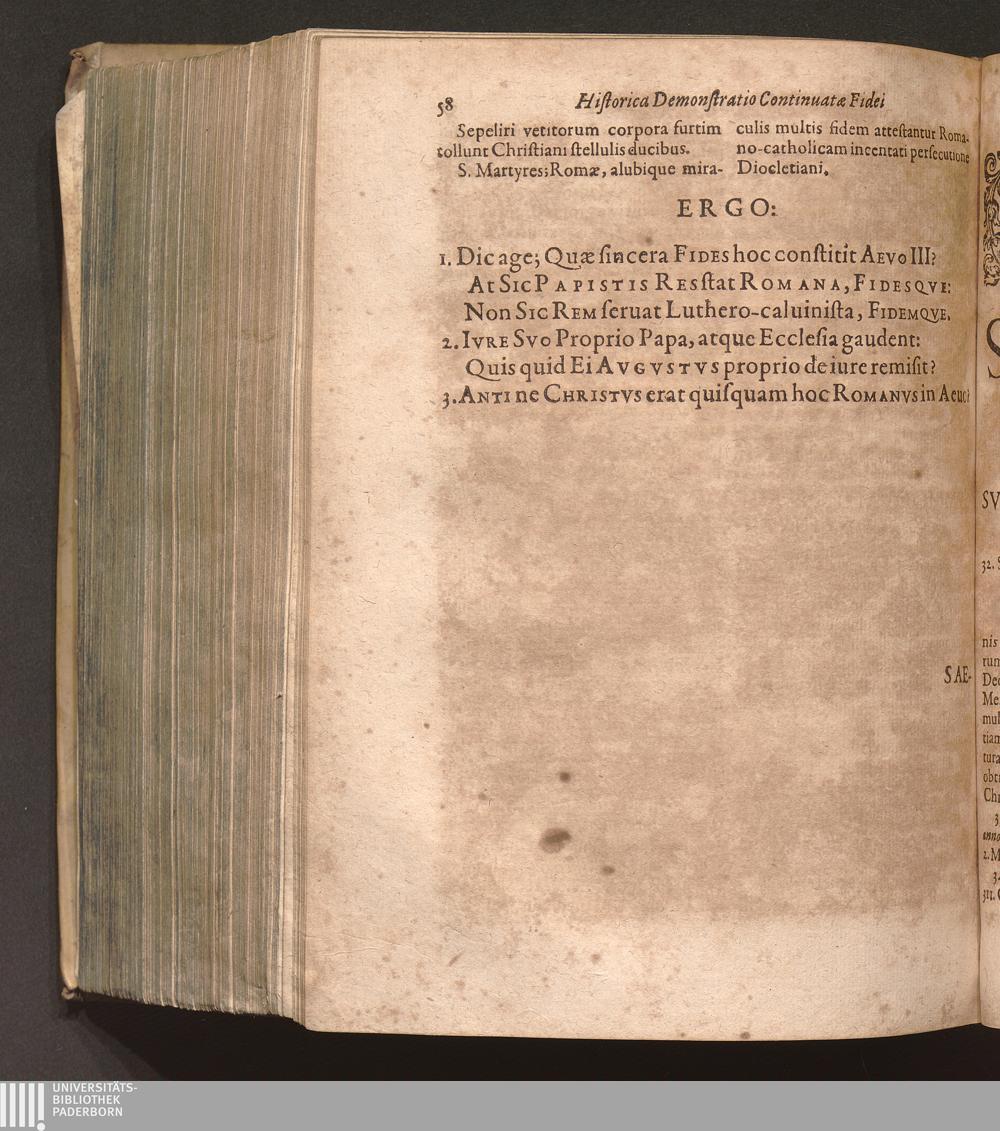 58
Hiſtorica Demonſtratio Continuatæ Fidei
Sepeliri vetitorum corpora furtim
tollunt Chriſtiani ſtellulis ducibus.
S. Martyres; Romæ, alubique mira-
culis multis fidem atteſtantur Roma-
no-catholicam incentati perſecutione
Diocletiani.
ERGO:
1. Dic age; Quæ ſincera FIDES hoc conſtitit AEVO III?
At SIC PAPISTIS RES ſtat ROMANA, FIDESQVE:
Non SIC REM ſeruat Luthero-caluiniſta, FIDEMQVE.
2. IVRE SVO Proprio Papa, atque Eccleſia gaudent:
Quis quid Ei AVGVSTVS proprio de iure remiſit?
3. ANTI ne CHRISTVS erat quiſquam hoc ROMANVS in Aeuo?
SAE-
SV
32. S
nis
rum
Dec
Me
mul
tiam
tura
obti
Chr
3
anno
2. M
34
311. C
UNIVERSITÄTS-
BIBLIOTHEK
PADERBORN